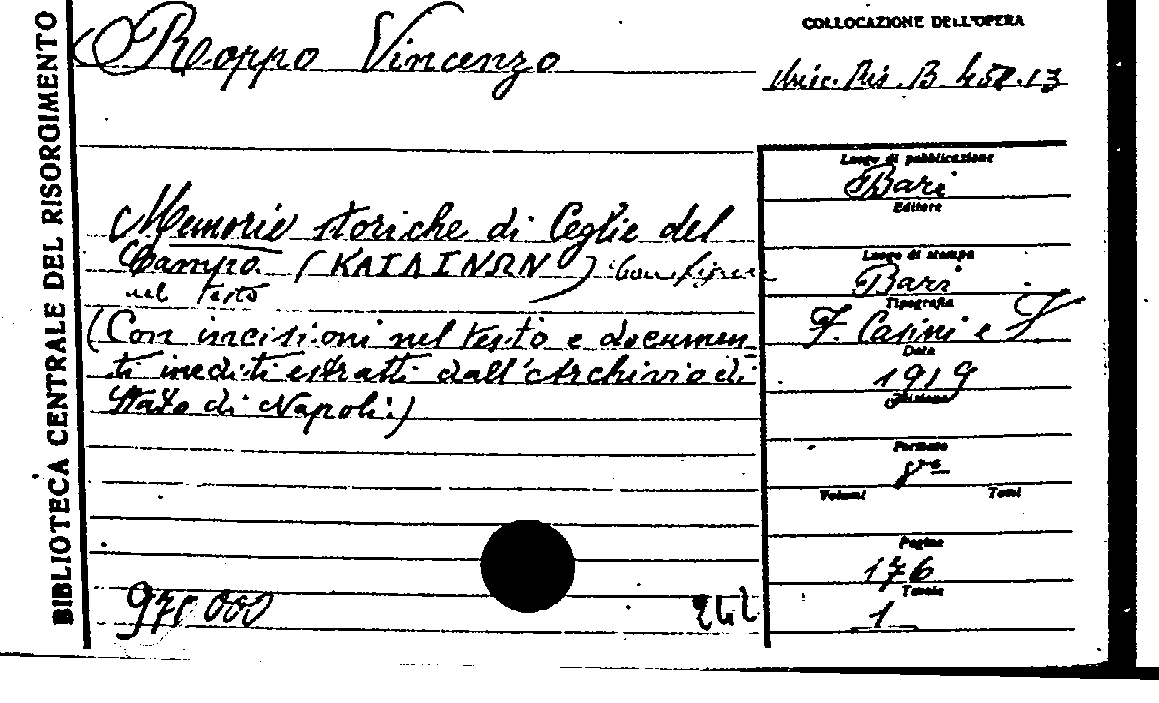 BIBLIOTECA CENTRALE DEL RISORGIMENTO
Roppo Vincenzo
COLLOCAZIONE DELL'OPERA
Misc. Ris. B. 451.13
Memorie storiche di Ceglie del
Campo (KAIΛINΩN) Con figure
nel testo
(Con incisioni nel testo e documen-
ti inediti estratti dall'Archivio di
Stato di Napoli.)
975000
242
Luogo di pubblicazione
Bari
Editore
Luogo di stampa
Bari
Tipografia
F. Casini e F
Data
1919
Edizione
Formato
8°
Volumi Tomi
Pagine
176
Tavole
1